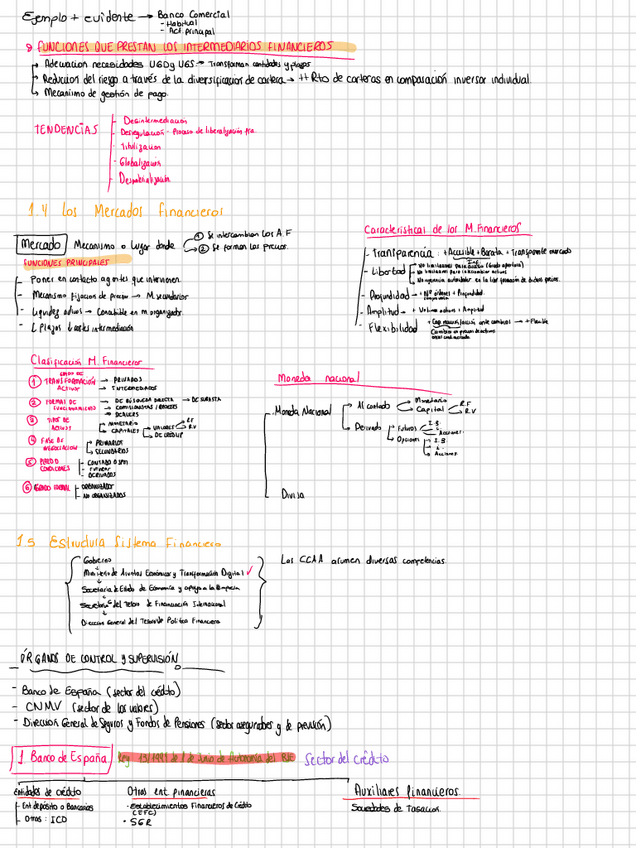 Ejemplo + evidente → Banco Comercial
- Habitual
- Act. principal
FUNCIONES QUE PRESTAN LOS INTERMEDIARIOS FINANCIEROS
Adecuacion necesidades UGD y UGS → Transforman cantidades y plazos
Reduccion del riesgo a través de la diversificacion de cartera → ++ Rto de carteras en comparación inversor individual.
Mecanismo de gestión de pago.
TENDENCIAS
- Desintermediacion
- Desregulacion - Proceso de liberalización fra.
- Titulizacion
- Globalizacion
1.4 Los Mercados financieros
Mercado Mecanismo o lugar donde
① Se intercambian los A.F
② Se forman los precios.
FUNCIONES PRINCIPALES
- Poner en contacto agentes que intervienen.
- Mecanismo fijacion de precio → M secundarios
- Liquidez activos →
- ↓ Plazos y costes intermediación
Caracteristicas de los M. Financieros
- Transparencia: + Accesible + Barata + Transparente mercado
- Libertad
- Profundidad → + Nº órdenes + Profundidad
- Amplitud → + Volumen activos + Amplitud
- Flexibilidad
→ + Flexible
Clasificación M. Financieros
GRADO DE
① TRANSFORMACIÓN ACTIVOS → PRIVADOS
→ INTERMEDIADOS
② FORMAS DE FUNCIONAMIENTO → DE BÚSQUEDA DIRECTA → DE SUBASTA
→ COMISIONISTAS / BROKERS
→ DEALERS
③ TIPOS DE ACTIVOS → MONETARIO
→ CAPITALES
VALORES
R.F
R.V
DE CREDITO
④ FASE DE NEGOCIACION
PRIMARIOS
SECUNDARIOS
⑤ PLAZO CONDICIONES
- CONTADO O SPOT
- FUTUROS
- DERIVADOS
⑥ GRADO FORMAL
- ORGANIZADOS
- NO ORGANIZADOS
Moneda nacional
- Moneda Nacional
Al contado
Monetario
Capital
R.F
R.V
Derivado
Futuros
I.B.
Acciones
Opciones
I.B.
Acciones
Divisa
1.5 Estructura Sistema Financiero
Gobierno
Ministerio de Asuntos Económicos y Transformación Digital ✓
Secretaria de Estado de Economía y apoyo a la Empresa
Secretaría del Tesoro de Financiación Internacional
Direccion General del Tesoro de Politica Financiera
Las CCAA asumen diversas competencias
ÓRGANOS DE CONTROL Y SUPERVISIÓN
- Banco de España (sector del crédito)
- CNMV (sector de los valores)
- Direccion General de Seguros y Fondos de Pensiones (sector asegurador y de previsión)
1. Banco de España Ley 13/1994 de 1 de Junio de Autonomia del BdE Sector del crédito
Entidades de crédito
- Ent depósito o Bancarias
- Otros: ICO
Otras ent. financieras
- Establecimientos Financieros de Crédito (EFC)
- SGR
Auxiliares financieros
Sociedades de Tasacion.